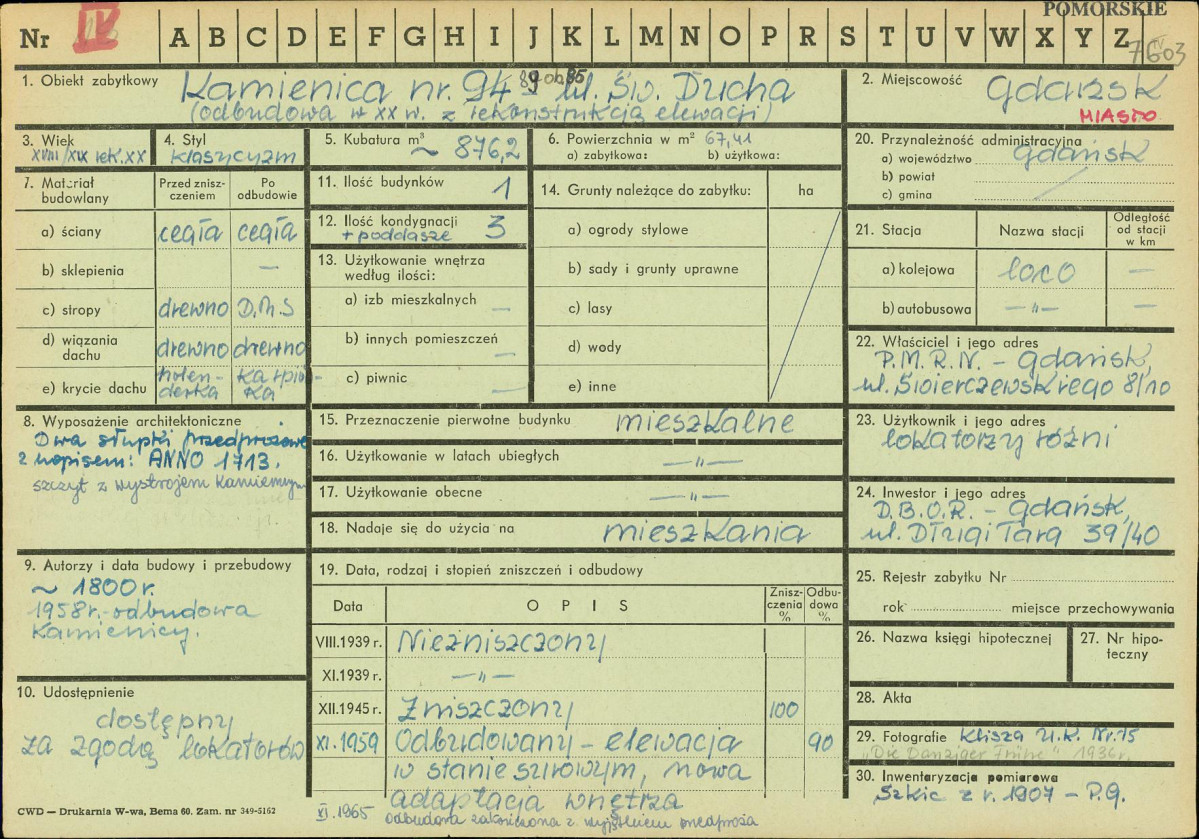 POMORSKIE
Nr IV A B C D E F G H I J K L M N O P R S T U V W X Y Z 7603
1. Obiekt zabytkowy Kamienica nr. 94 ul. Św. Ducha
(odbudowa w XX w. z rekonstrukcją elewacji)
2. Miejscowość Gdańsk
MIASTO
3. Wiek
XVIII/XIX rek. XX
4. Styl
klasycyzm
5. Kubatura m³ ~ 876,2
6. Powierzchnia w m² 67,41
a) zabytkowa: b) użytkowa:
7. Materiał budowlany
Przed zniszczeniem
Po odbudowie
a) ściany cegła cegła
b) sklepienia —
c) stropy drewno D.M.S
d) wiązania dachu drewno drewno
e) krycie dachu holenderka karpiówka
8. Wyposażenie architektoniczne
Dwa słupki przedprożowe
z napisem: ANNO 1713.
szczyt z wystrojem kamiennym
9. Autorzy i data budowy i przebudowy
~ 1800 r.
1958 r. - odbudowa
kamienicy.
10. Udostępnienie
dostępny
za zgodą lokatorów
11. Ilość budynków 1
12. Ilość kondygnacji 3
+ poddasze
13. Użytkowanie wnętrza według ilości:
a) izb mieszkalnych —
b) innych pomieszczeń —
c) piwnic —
14. Grunty należące do zabytku: ha
a) ogrody stylowe
b) sady i grunty uprawne
c) lasy
d) wody
e) inne
15. Przeznaczenie pierwotne budynku mieszkalne
16. Użytkowanie w latach ubiegłych —"—
17. Użytkowanie obecne —"—
18. Nadaje się do użycia na mieszkania
19. Data, rodzaj i stopień zniszczeń i odbudowy
Data OPIS Zniszczenia % Odbudowa %
VIII.1939 r. Niezniszczony
XI.1939 r. —"—
XII.1945 r. Zniszczony 100
XI.1959 Odbudowany - elewacja 90
w stanie surowym, nowa
adaptacja wnętrza
XI.1965 odbudowa zakończona z wyjątkiem przedproża
20. Przynależność administracyjna
a) województwo Gdańsk
b) powiat
c) gmina
21. Stacja Nazwa stacji Odległość od stacji w km
a) kolejowa loco —
b) autobusowa —"— —
22. Właściciel i jego adres
P.M.R.N. - Gdańsk,
ul. Świerczewskiego 8/10
23. Użytkownik i jego adres
lokatorzy różni
24. Inwestor i jego adres
D.B.O.R. - Gdańsk,
ul. Długi Targ 39/40
25. Rejestr zabytku Nr
rok miejsce przechowywania
26. Nazwa księgi hipotecznej
27. Nr hipoteczny
28. Akta
29. Fotografie Klisza U.K. Nr. 15
"Die Danziger 1936 r.
30. Inwentaryzacja pomiarowa
Szkic z r. 1907 - P.G.
CWD — Drukarnia W-wa, Bema 60. Zam. nr 349-5162